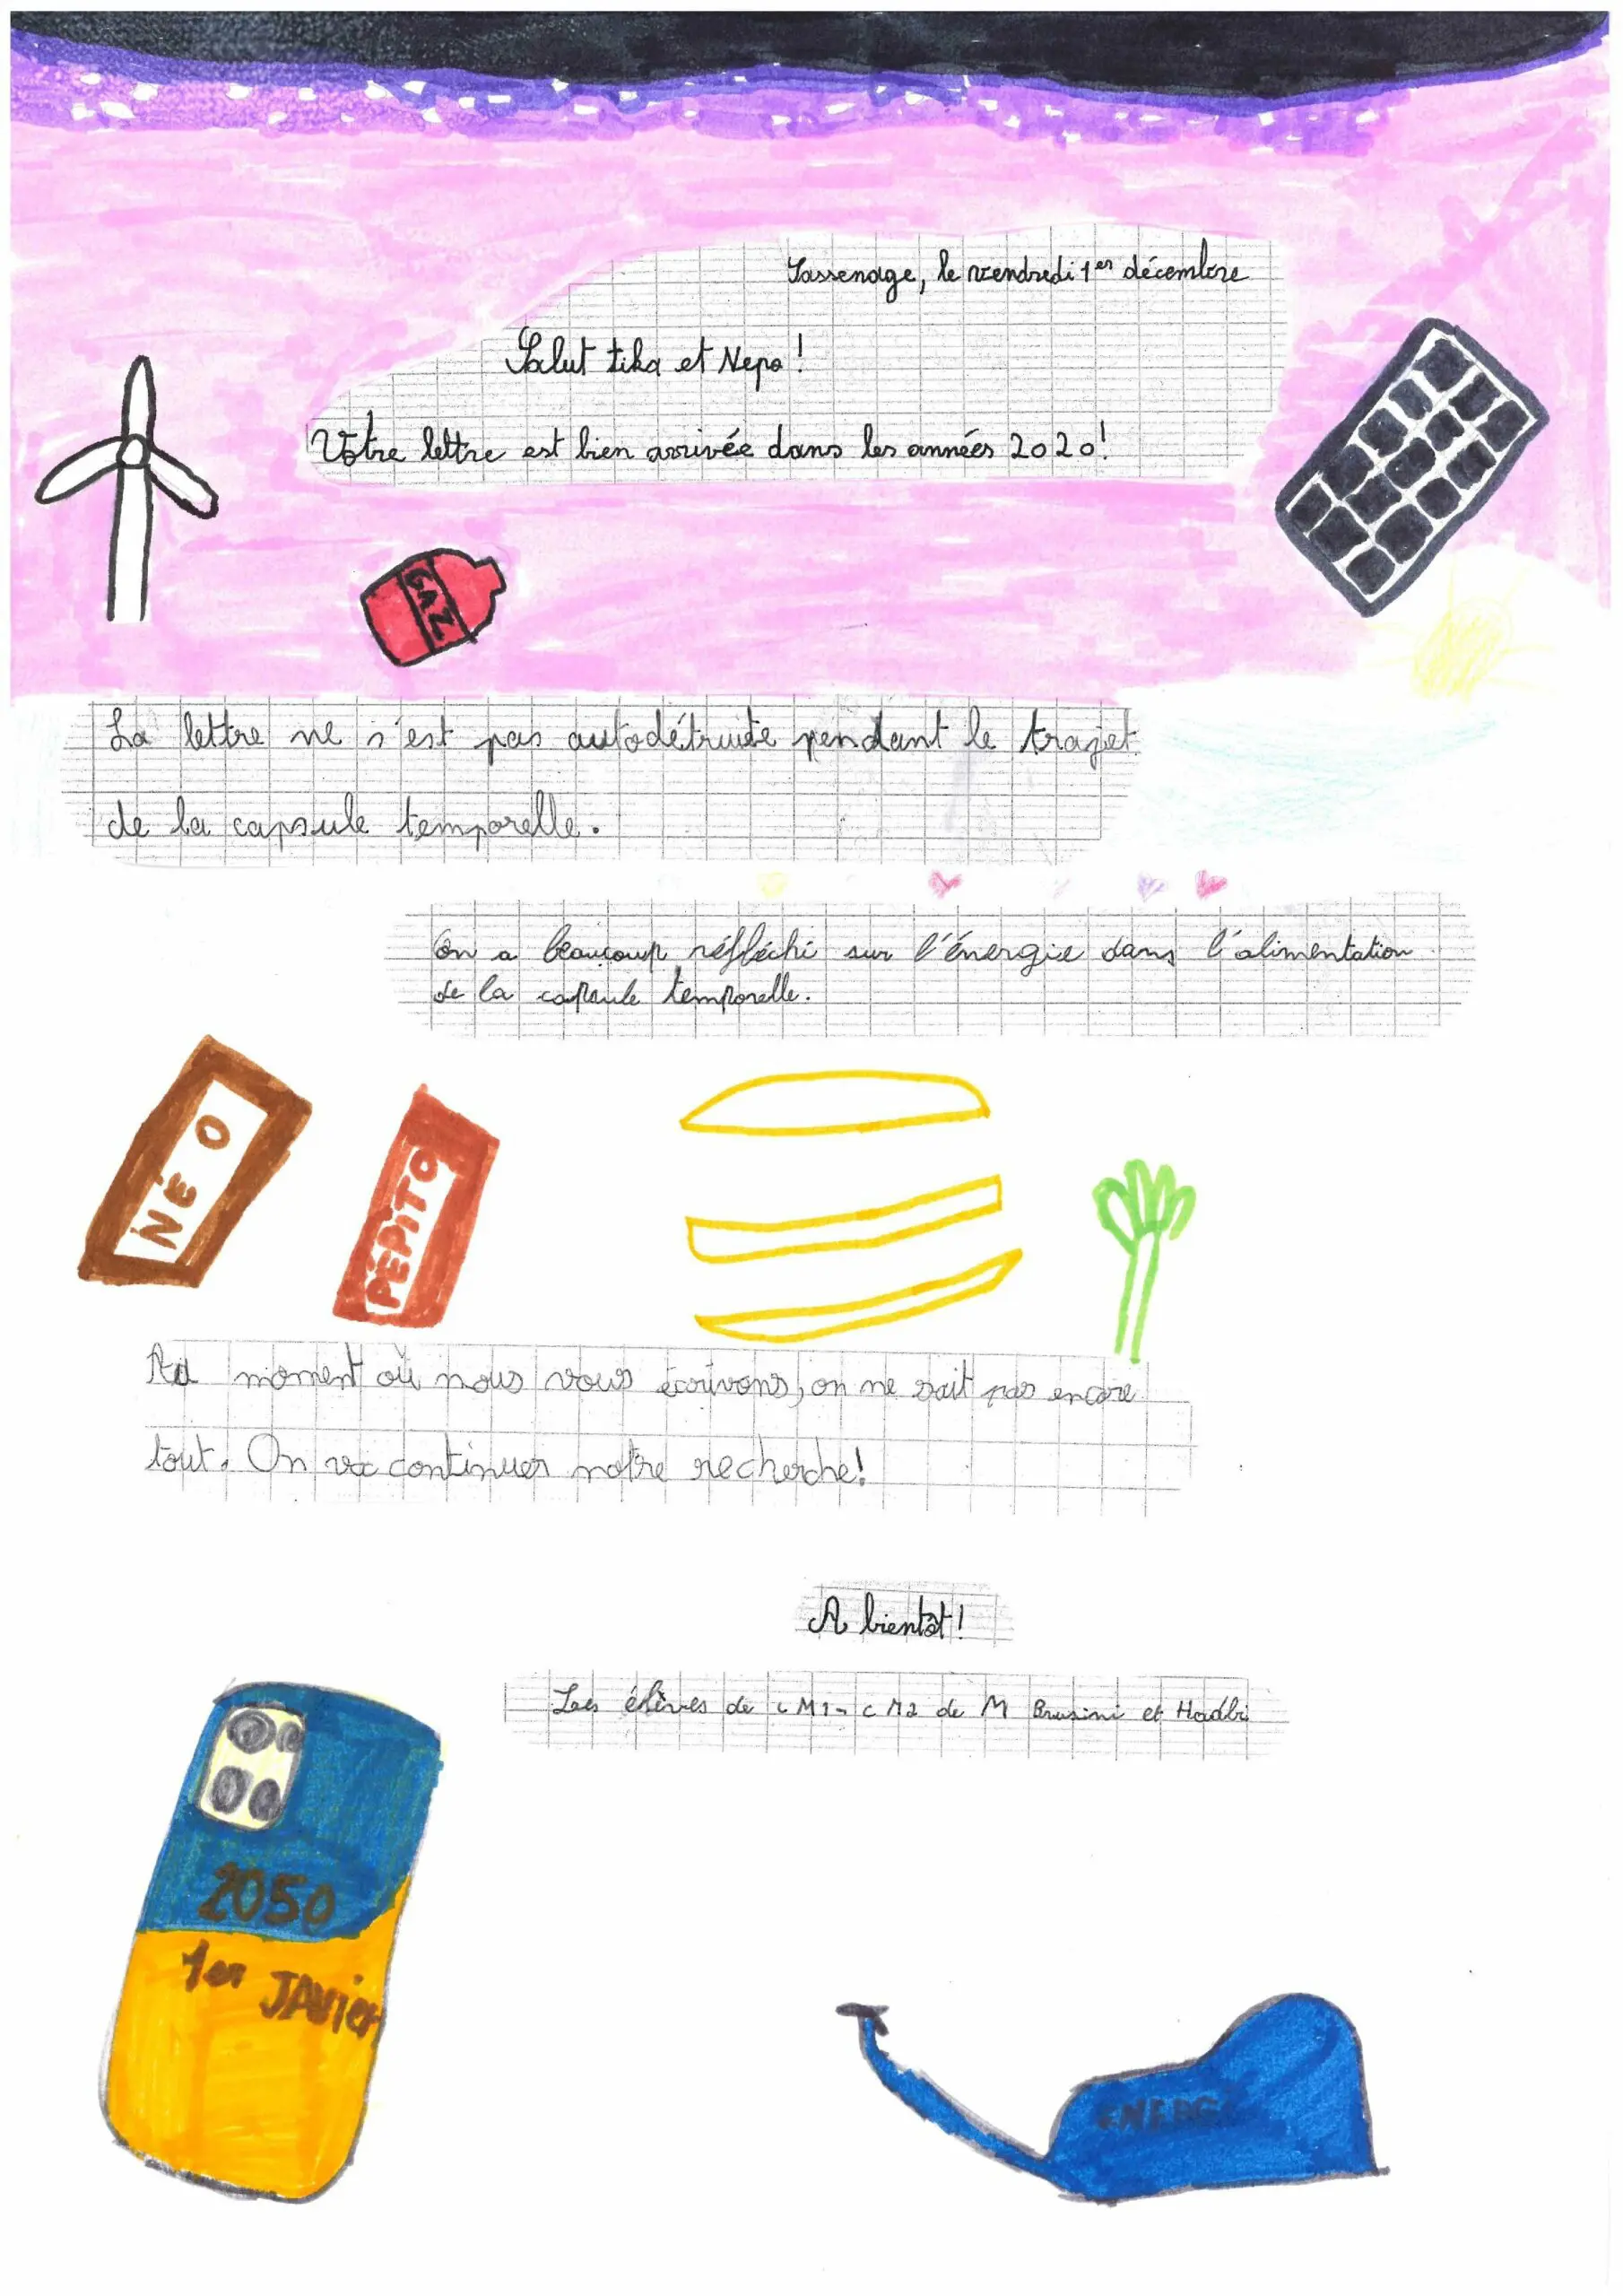 Sassenage, le vendredi 1er décembre
Salut tika et Nepo!
Votre lettre est bien arrivée dans les années 2020!
GAZ
La lettre ne s'est pas autodétruite pendant le trajet
de la capsule temporelle.
On a beaucoup réfléchi sur l'énergie dans l'alimentation
de la capsule temporelle.
NÉO
PÉPITO
Au moment où nous vous écrivons, on ne sait pas encore
tout. On va continuer notre recherche!
A bientôt!
Les élèves de CM1-CM2 de M Brusini et Hadbi
2050
1er JAVier
ENERG